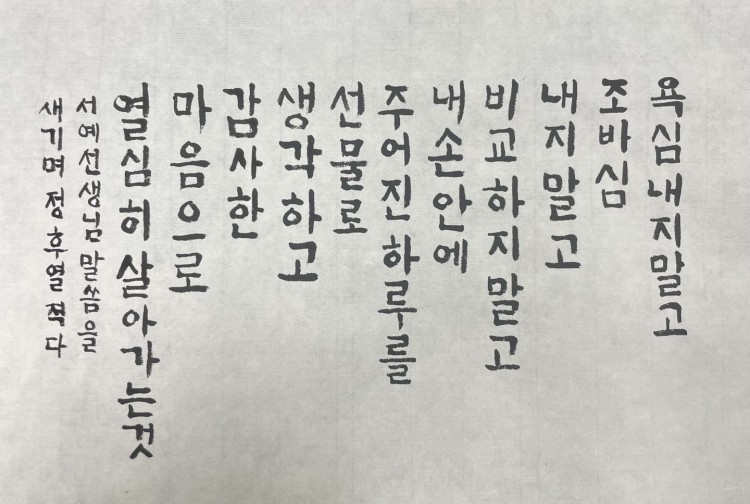 욕심내지말고
조바심
내지말고
비교하지말고
내손안에
주어진하루를
선물로
생각하고
감사한
마음으로
열심히살아가는것
서예선생님말씀을
새기며정후열적다